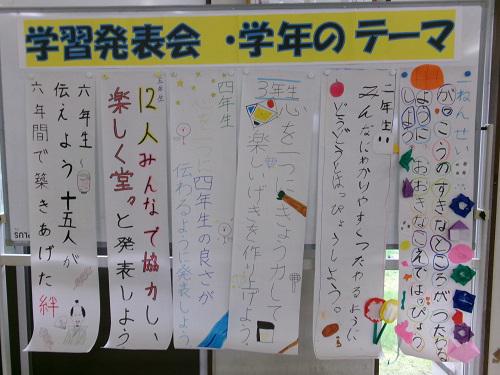 学習発表会・学年のテーマ
一ねんせい
がっこうのすきなところが つたわる
ように おおきなこえで はっぴょう
しよう
二年生
みんなにわかりやすくつたわるように
どうどうとはっぴょうしよう。
3年生
心を一つにきょう力して
楽しいげきを作り上げよう
四年生
四年生の良さが
伝わるように発表しよう
五年生
12人みんなで協力しい
楽しく堂々と発表しよう
六年生
伝えよう 十五人が
六年間で築きあげた 絆